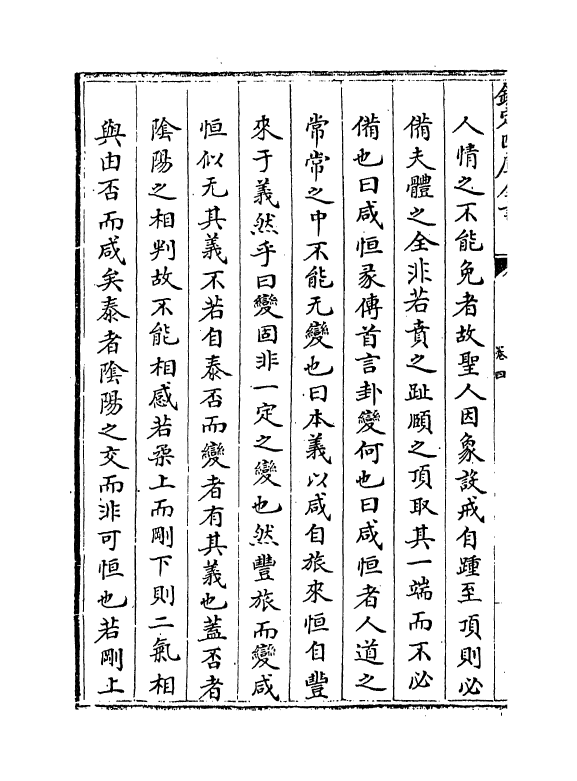 欽定四庫全書
卷四
人情之不能免者故聖人因象設戒自踵至頂則必
備夫體之全非若賁之趾頤之頂取其一端而不必
備也曰咸恒彖傳首言卦變何也曰咸恒者人道之
常常之中不能无變也曰本義以咸自旅來恒自豐
來于義然乎曰變固非一定之變也然豐旅而變咸
恒似无其義不若自泰否而變者有其義也蓋否者
隂陽之相判故不能相感若柔上而剛下則二氣相
與由否而咸矣泰者隂陽之交而非可恒也若剛上